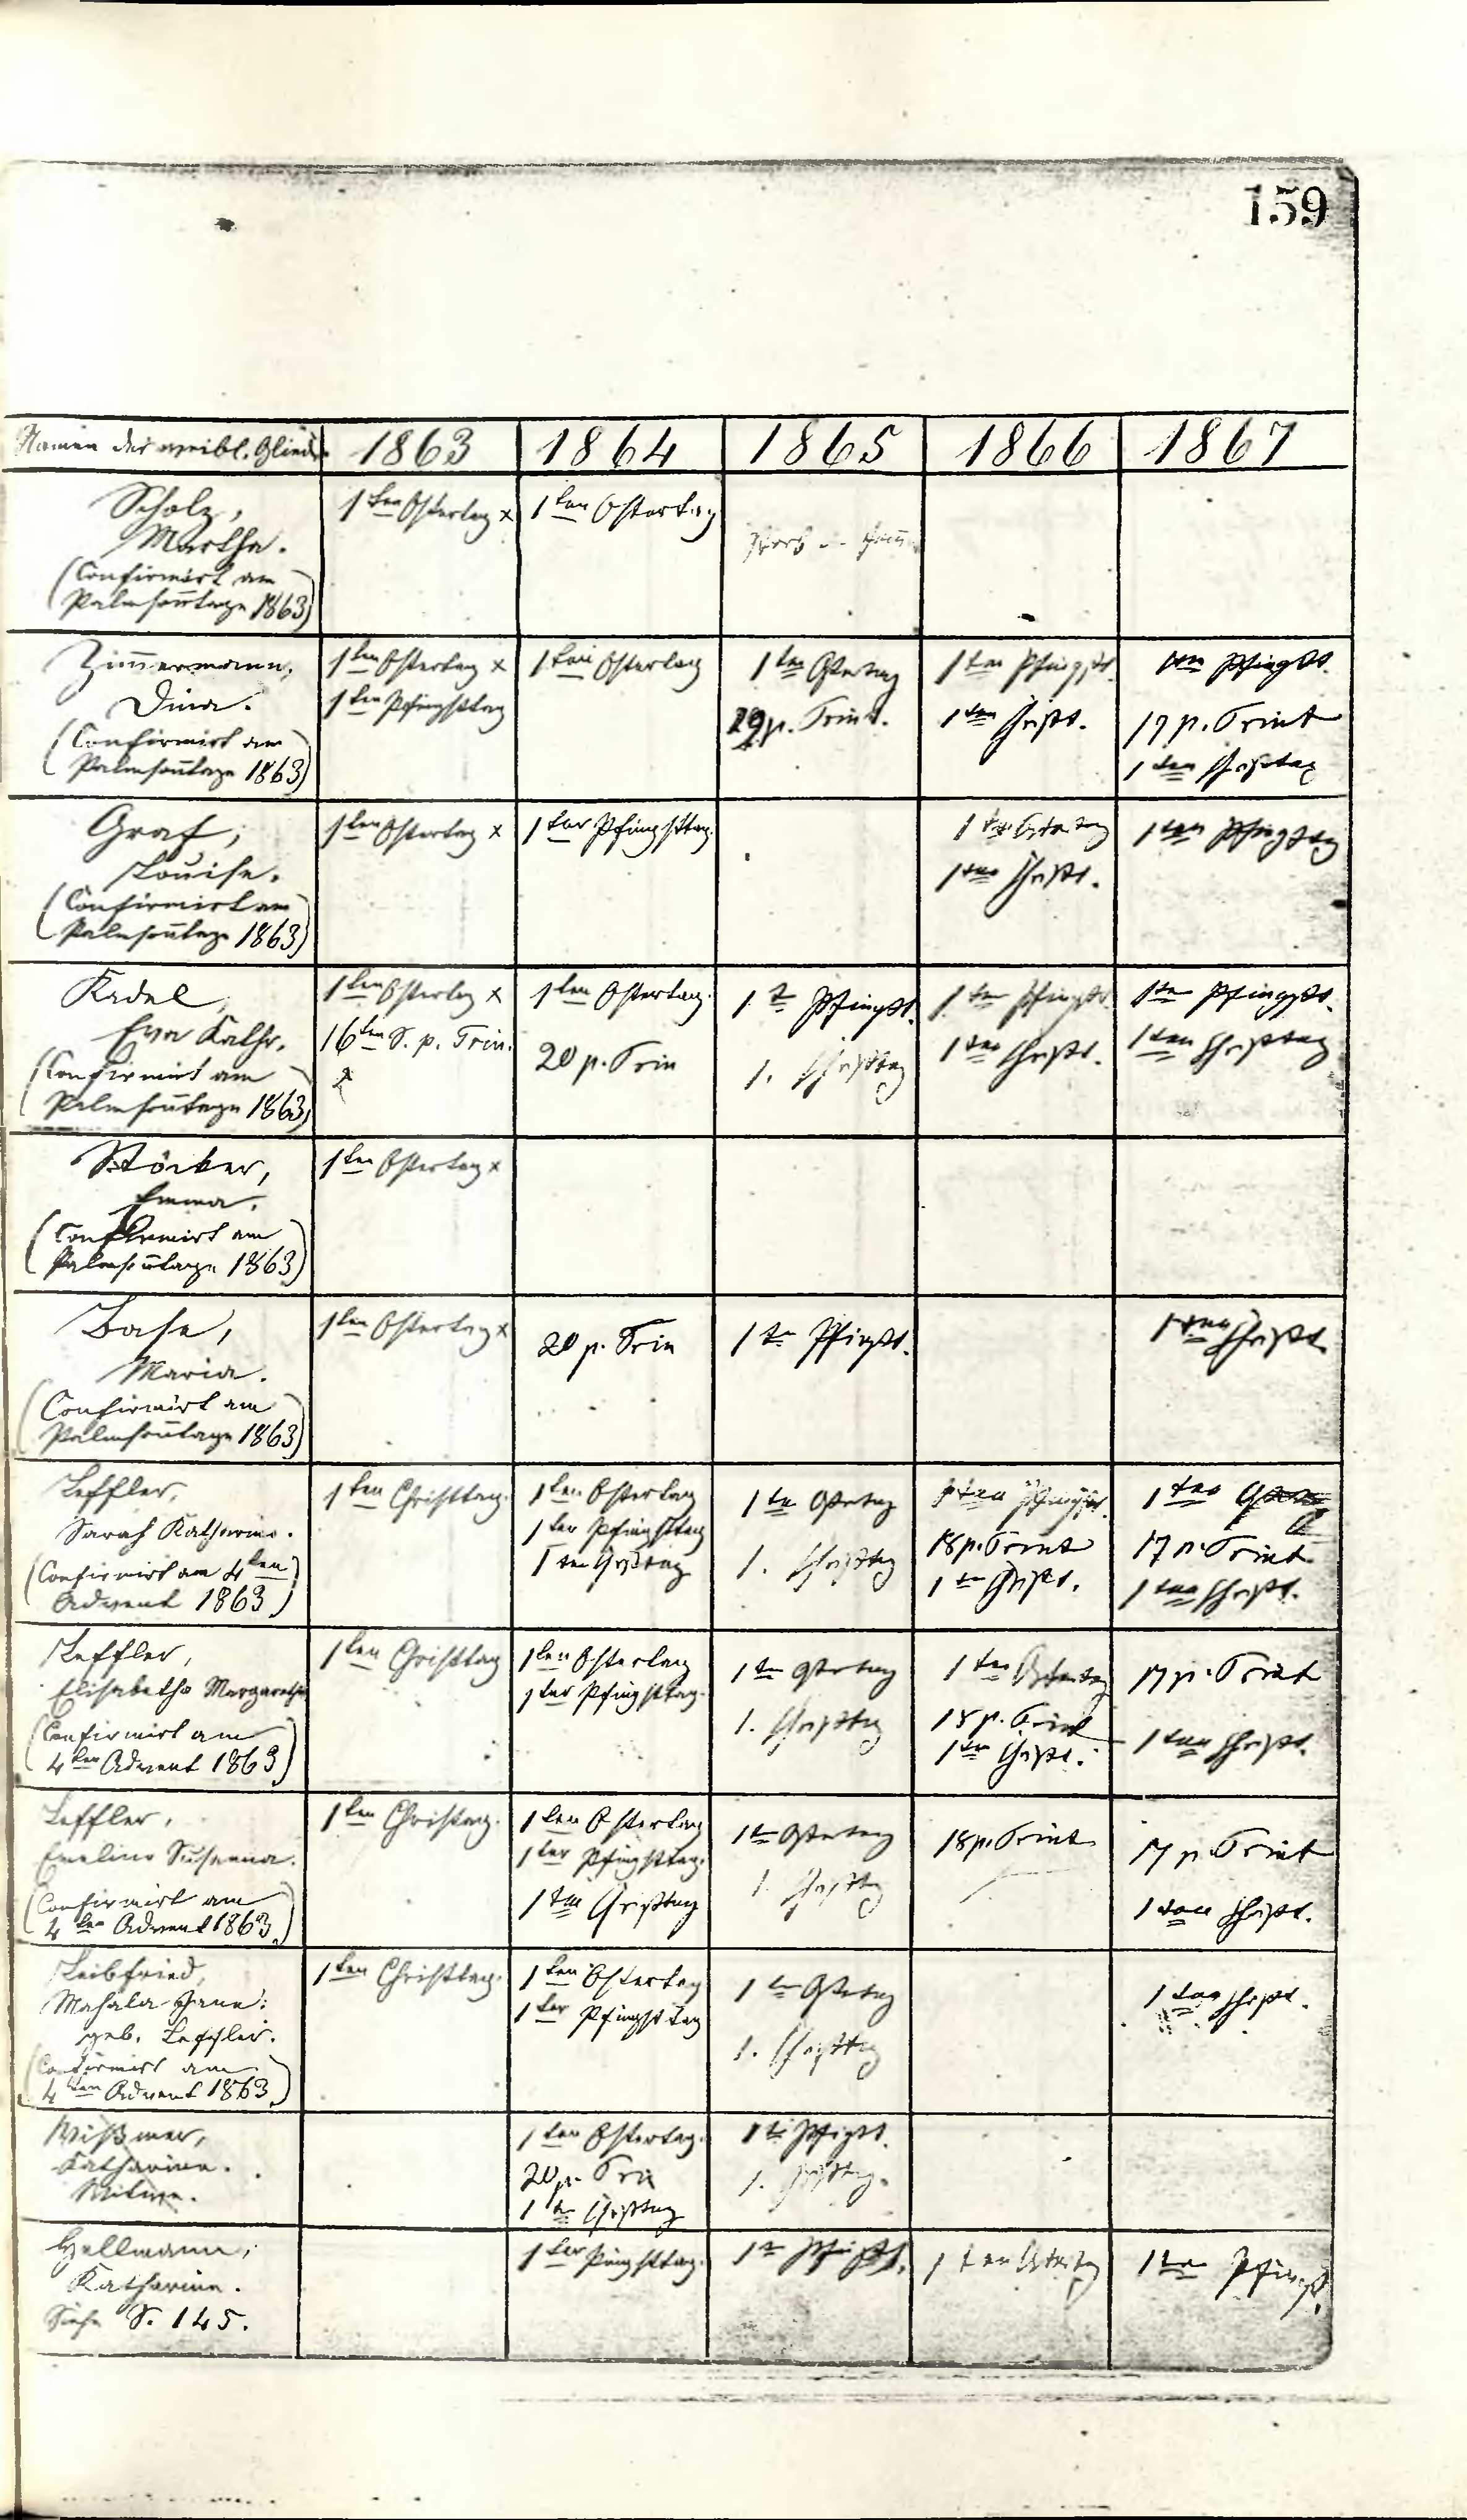 159
Namen der weibl. Glieder 1863 1864 1865 1866 1867
Scholz,
Martha.
(Confirmirt am
Palmson̄tage 1863)
1ten Ostertag x
1ten Ostertag
Zim̄ermann,
Dina.
(Confirmirt am
Palmson̄tage 1863)
1ten Ostertag x
1ten Pfingsttag
1ten Ostertag
1ten Ostertag
p. Trint.
1ten Pfingst.
1ten Christ.
1ten Pfingst.
17 p. Trint
1ten Christtag
Graf,
Louise.
(Confirmirt am
Palmson̄tage 1863)
1ten Ostertag x
1ter Pfingsttag.
1ten Ostertag
1ten Christ.
1ten Pfingsttag
Kadel,
Eva Kathr.
(Confirmirt am
Palmson̄tage 1863)
1ten Ostertag x
16ten S. p. Trin.
1ten Ostertag.
20 p. Trin
1te Pfingst.
1. Christtag
1ten Pfingst.
1ten Christ.
1ten Pfingst.
1ten Christtag
Stöcker,
Emma.
(Confirmirt am
Palmson̄tage 1863)
1ten Ostertag x
Base,
Maria.
(Confirmirt am
Palmson̄tage 1863)
1ten Ostertag x
20 p. Trin
1te Pfingst.
1ten Christ.
Leffler,
Sarah Katharine.
(Confirmirt am 4ten
Advent 1863)
1ten Christtag.
1ten Ostertag
1ter Pfingsttag
1ten Christtag
1te Ostertag
1. Christtag
1ten Pfingst.
18 p. Trint
1ten Christ.
1ten
17 p. Trint
1ten Christ.
Leffler,
Elisabetha Margaretha
(Confirmirt am
4ten Advent 1863)
1ten Christtag
1ten Ostertag
1ter Pfingsttag.
1te Ostertag
1. Christtag
1ten Ostertag
18 p. Trint
1ten Christ.
17 p. Trint
1ten Christ.
Leffler,
Emeline Susanna.
(Confirmirt am
4ten Advent 1863)
1ten Christtag.
1ten Ostertag
1ter Pfingsttag.
1ten Christtag
1te Ostertag
1. Christtag
18 p. Trint
17 p. Trint
1ten Christ.
Leibfried,
Mahala Jane:
geb. Leffler.
(Confirmirt am
4ten Advent 1863)
1ten Christtag.
1ten Ostertag
1ter Pfingsttag
1te Ostertag
1. Christtag
1ten Christ.
Wißmer,
Katharine.
Witwe.
1ten Ostertag.
20 p. Trin
1te Christtag
1te Pfingst.
1. Christtag.
Hellmann,
Katharine.
Siehe S. 145.
1ter Pfingsttag.
1te Pfingst.
1ten Ostertag
1ten Pfingst.